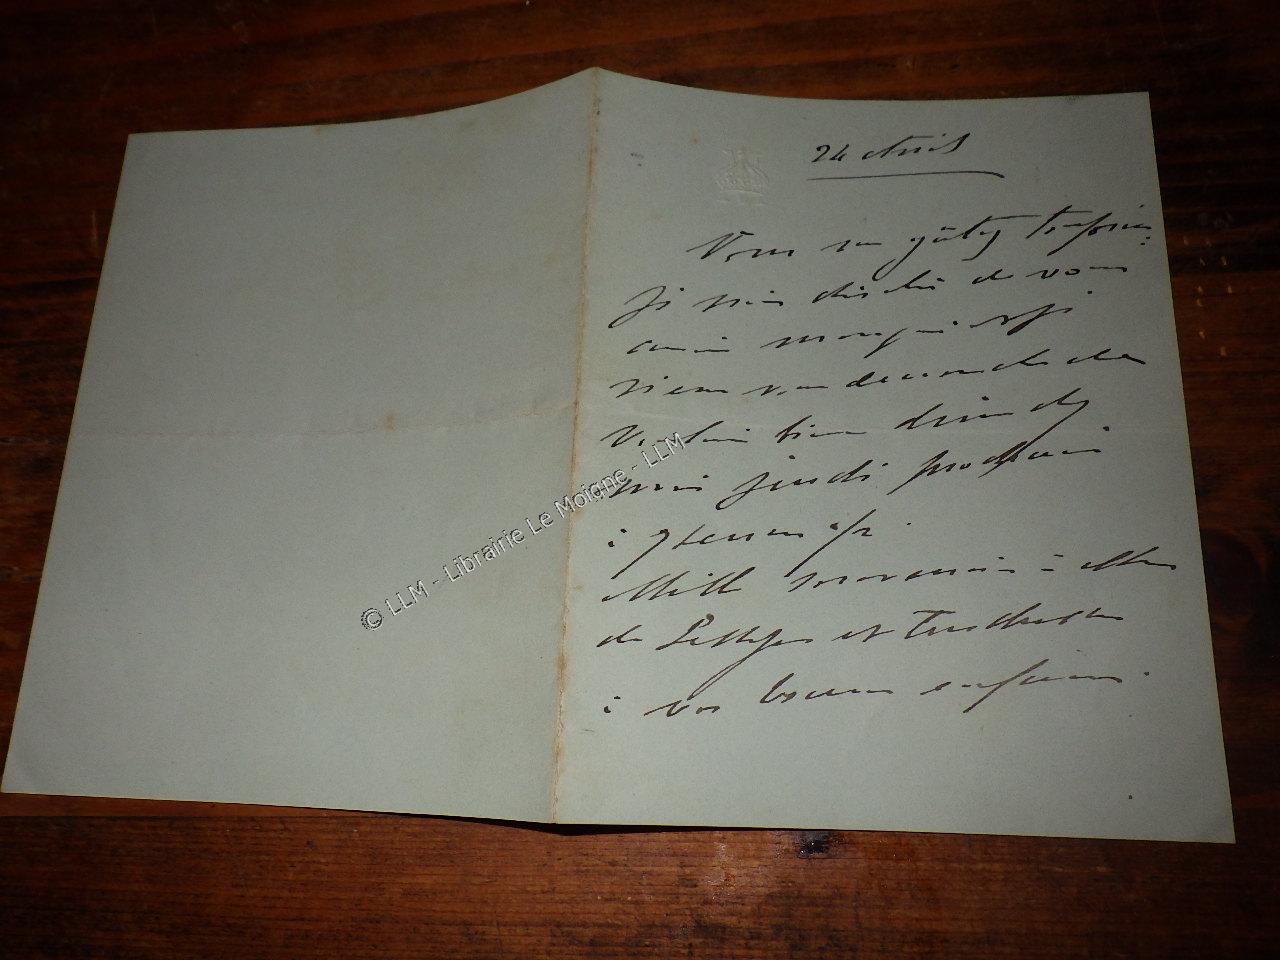 24 Avril
Vous me gâtez toujours:
Je suis de vous
avoir manqué et je
viens vous demander de
vouloir bien dîner
jeudi prochain
à 7 heures ½.
Mille souvenirs à
de et tendresses
à vos beaux enfants.
© LLM - Librairie Le Moigne - LLM